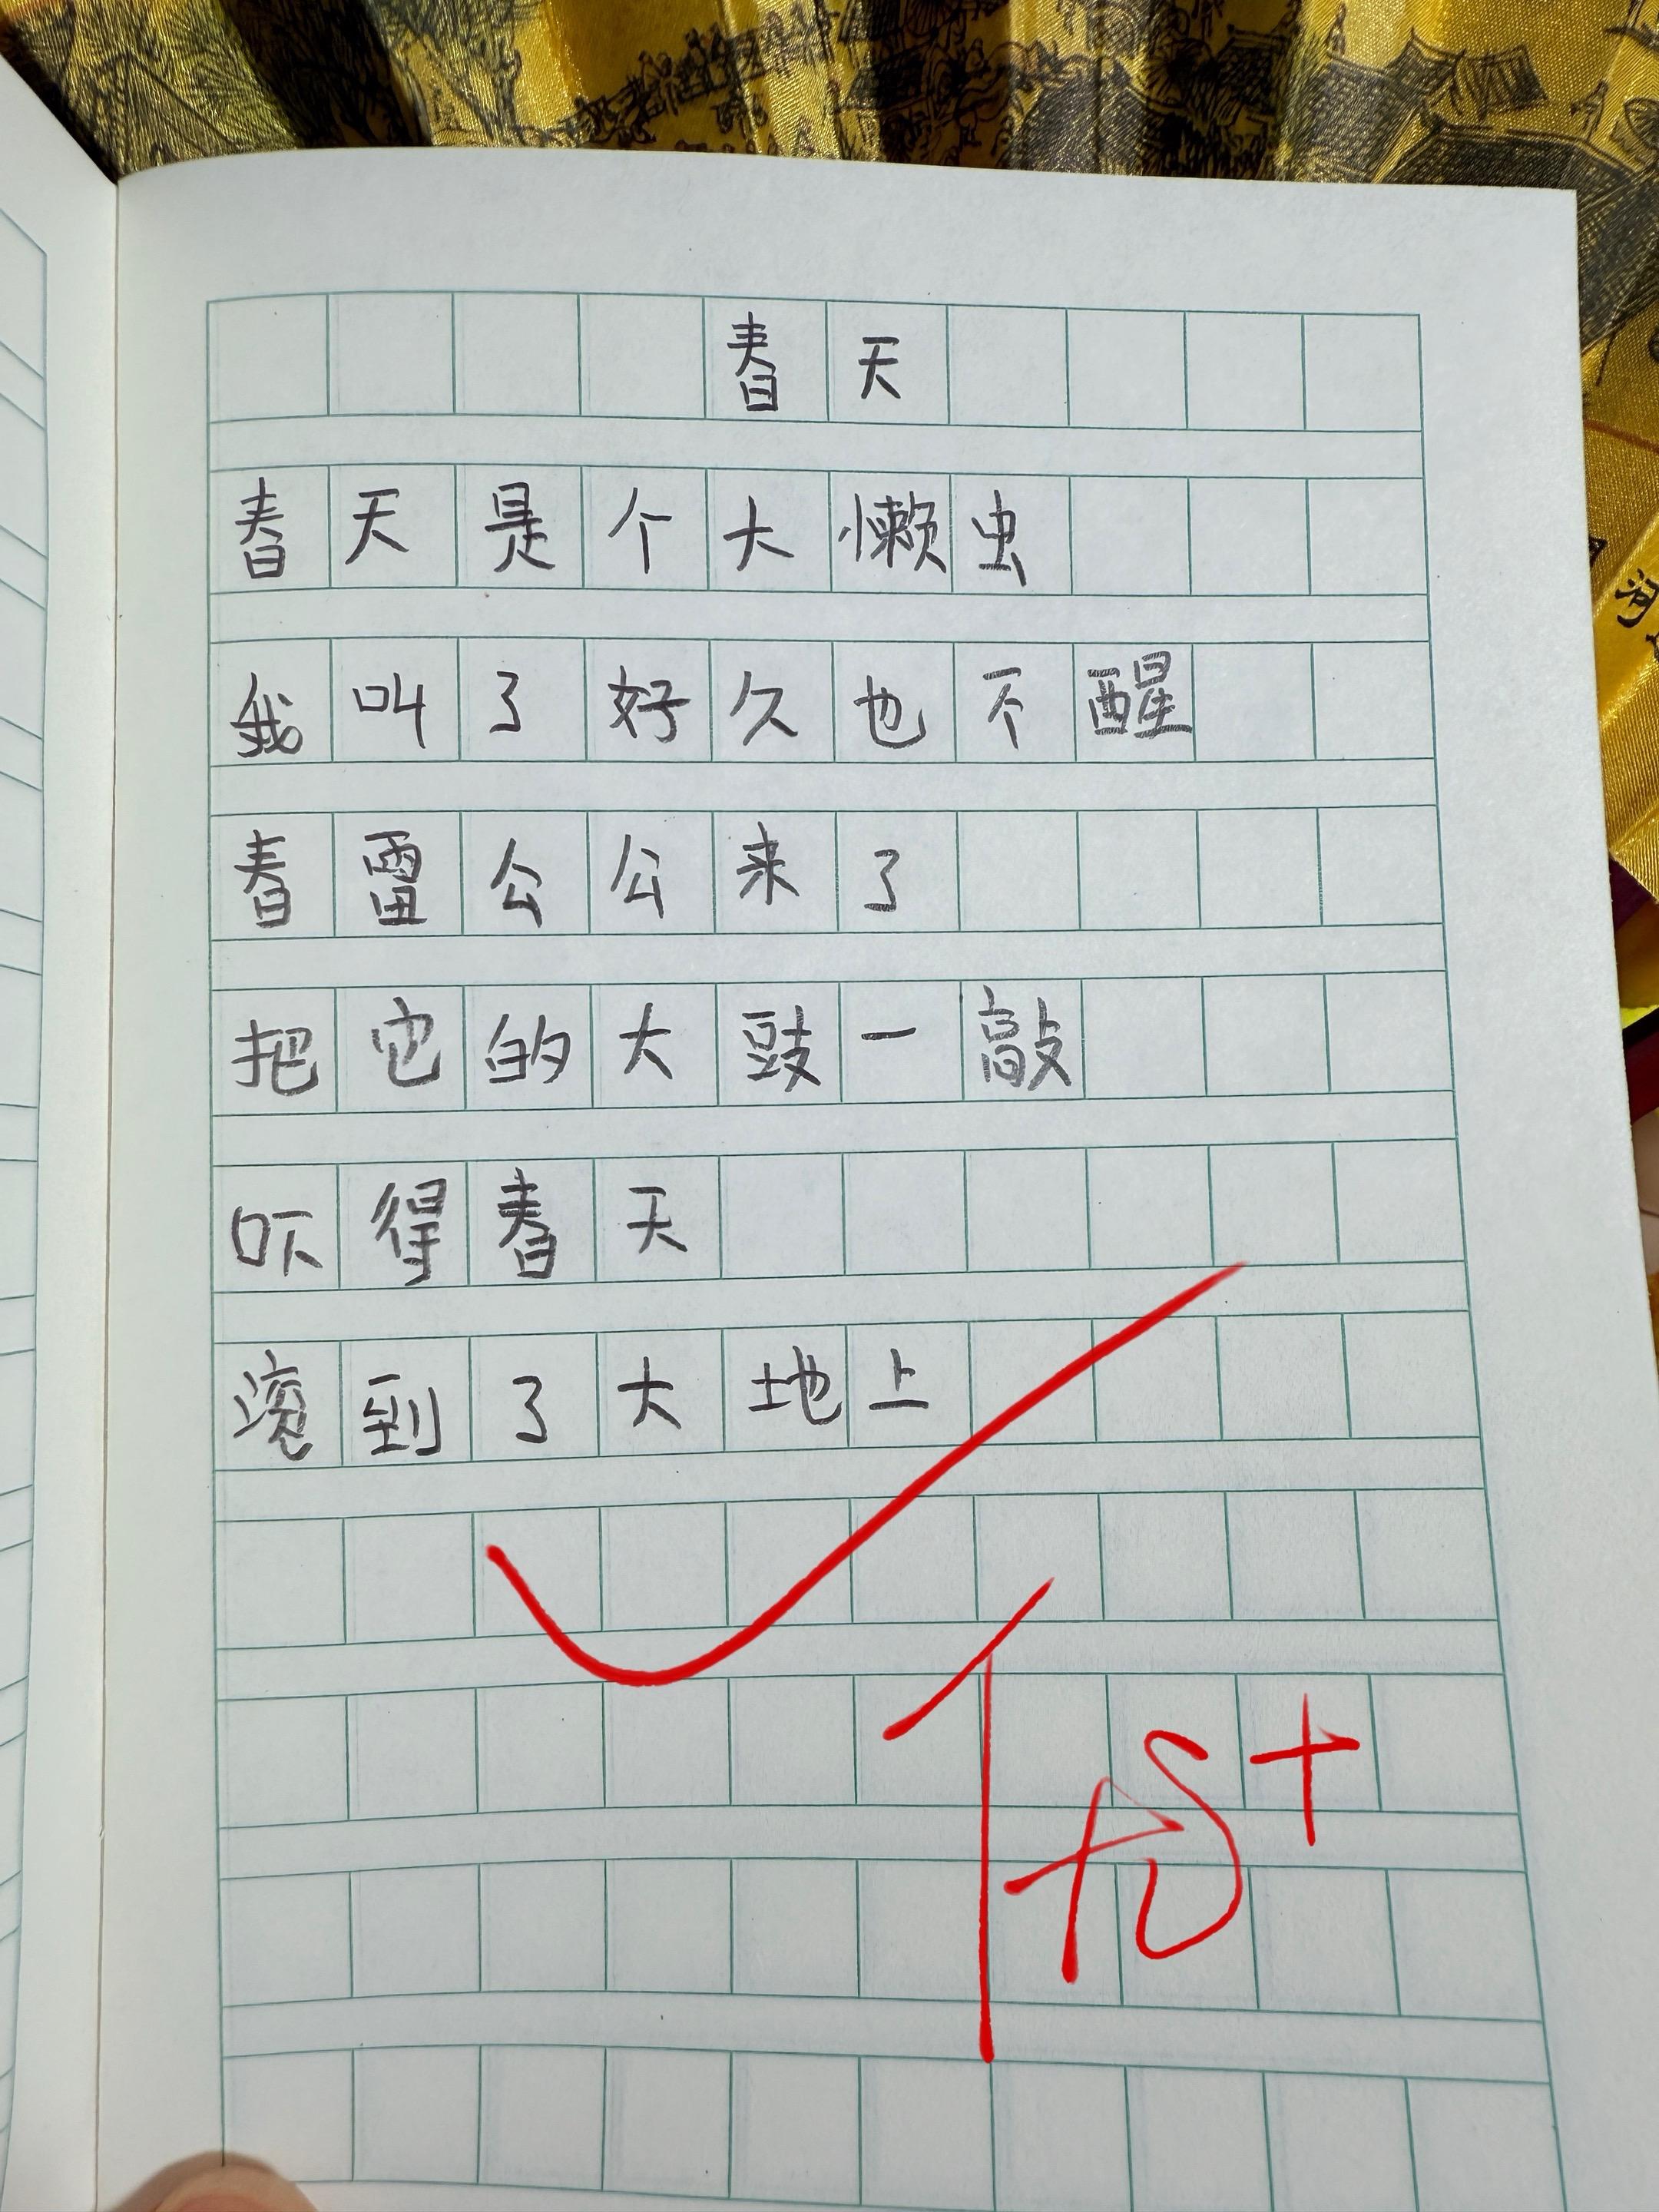 春天
春天是个大懒虫
我叫了好久也不醒
春雷公公来了
把它的大鼓一敲
吓得春天
滚到了大地上